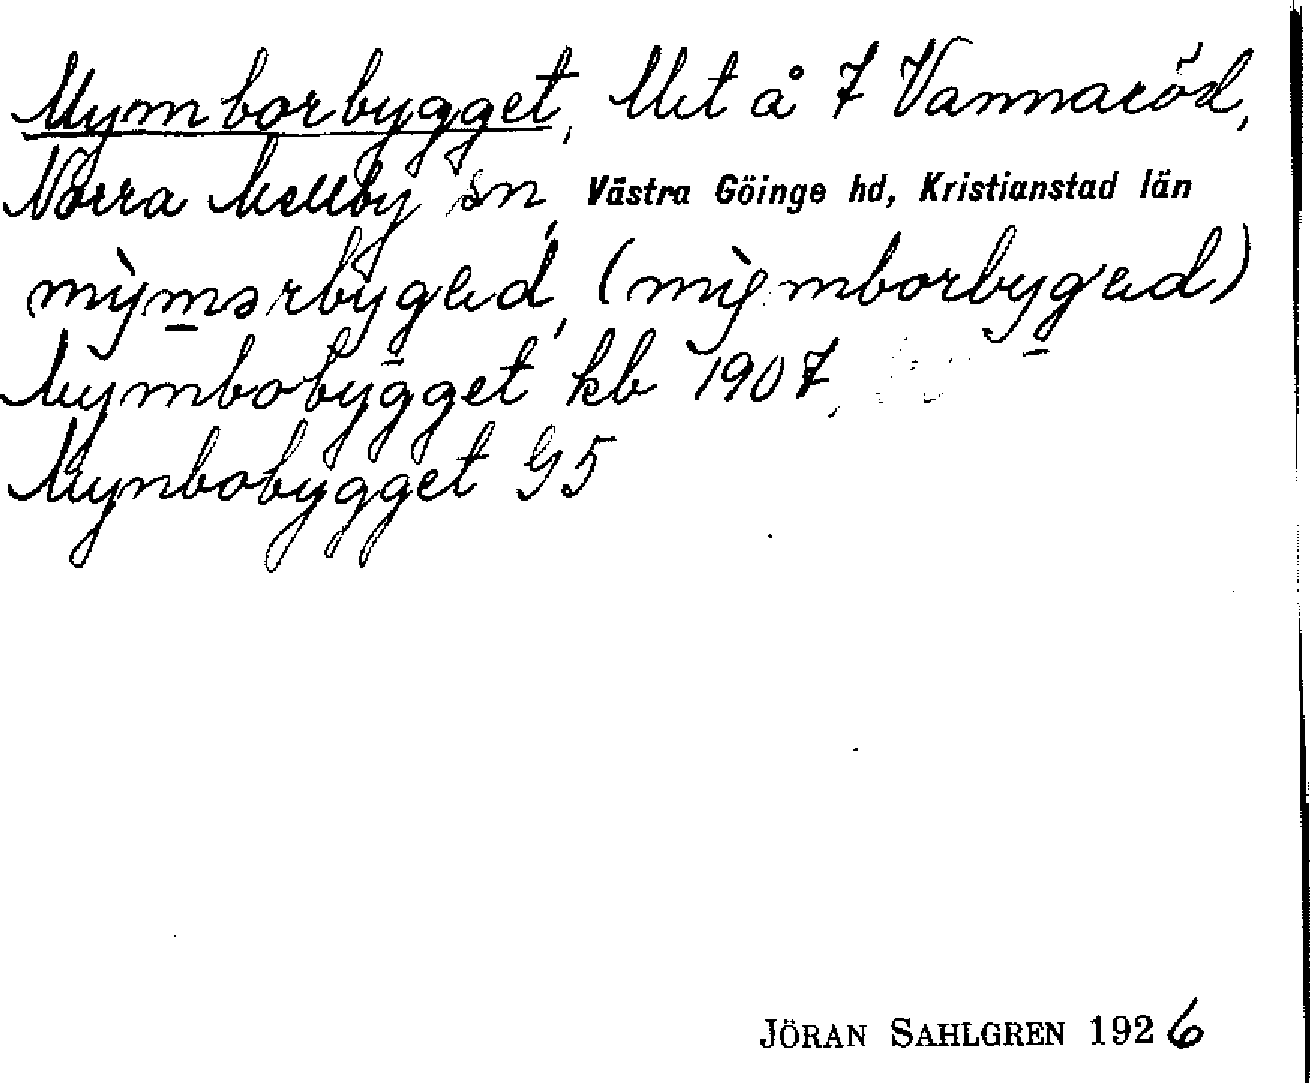 Mymborbygget, Uet å 7 Vannaröd,
Norra Mellby sn, Västra Göinge hd, Kristianstad län
mỳmərbygəd, (mỳmborbygəd)
Mymbobygget kb 1907,
Mynbobygget G5
JÖRAN SAHLGREN 1926